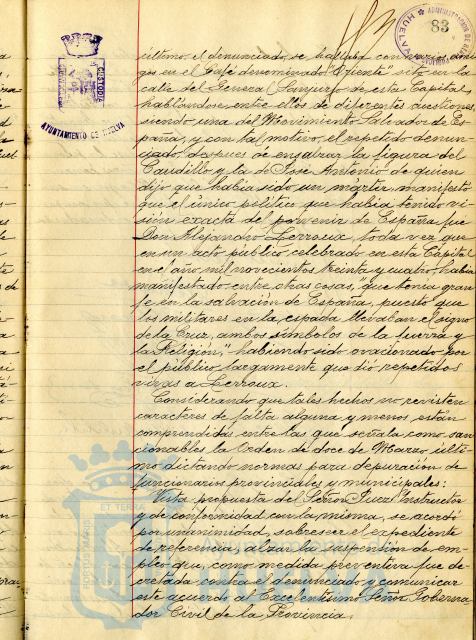 HUELVA
83
CUSTODIA
AYUNTAMIENTO DE HUELVA
último, el denunciado se hallaba con varios ami-
gos en el Café denominado "Oriente" sito en la
calle del General Sanjurjo de esta Capital
hablándose entre ellos de diferentes cuestiones
siendo una del Movimiento Salvador de Es-
paña, y con tal motivo, el repetido denun-
ciado, después de ensalzar la figura del
Caudillo y la de José Antonio de quien
dijo que había sido un mártir, manifestó
que el único político que había tenido vi-
sión exacta del porvenir de España fue
Don Alejandro Lerroux, toda vez que
en un acto público, celebrado en esta Capital
en el año mil novecientos treinta y cuatro, había
manifestado entre otras cosas, que tenía gran
fe en la salvación de España, puesto que
los militares en la espada llevaban el signo
de la Cruz, ambos símbolos de la fuerza y
la Religión," habiendo sido ovacionado por
el público largamente que dió repetidos
vivas a Lerroux.
Considerando que tales hechos no revisten
caracteres de falta alguna y menos están
comprendidas entre las que señala como san-
cionables la Orden de doce de Marzo últi-
mo dictando normas para depuración de
funcionarios provinciales y municipales:
Vista propuesta del Señor Juez Instructor
y de conformidad con la misma, se acordó
por unanimidad, sobreseer el expediente
de referencia, alzar la suspensión de em-
pleo que, como medida preventiva fue de-
cretada contra el denunciado y comunicar
este acuerdo al Excelentísimo Señor Goberna-
dor Civil de la Provincia.
ET TERRA